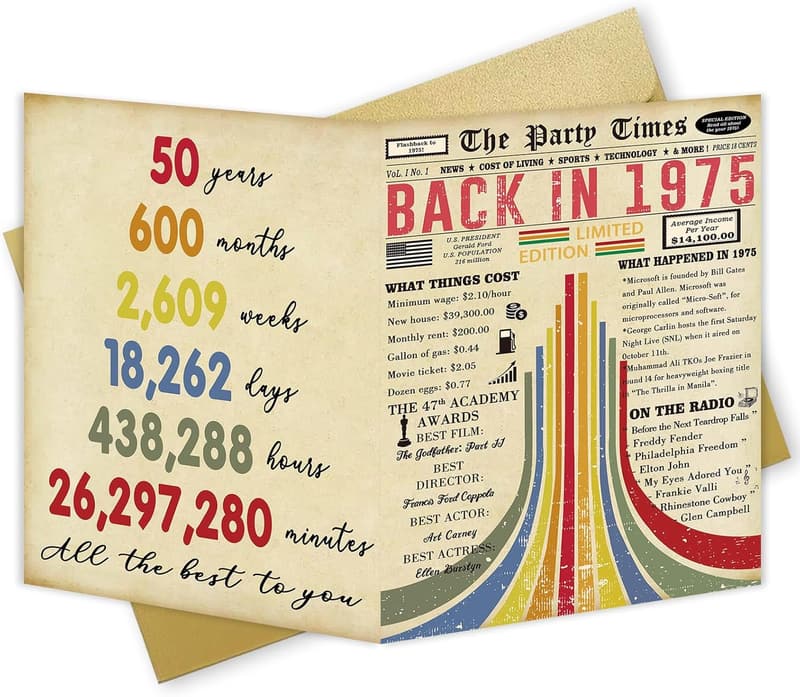 50 years
600 months
2,609 weeks
18,262 days
438,288 hours
26,297,280 minutes
All the best to you
Flashback to
1975!
The Party Times
SPECIAL EDITION
Read all about
the year 1975!
VoL. 1 No. 1
NEWS ★ COST OF LIVING ★ SPORTS ★ TECHNOLOGY ★ & MORE!
PRICE 15 CENTS
BACK IN 1975
U.S. PRESIDENT
Gerald Ford
U.S. POPULATION
216 million
LIMITED
EDITION
Average Income
Per Year
$14,100.00
WHAT THINGS COST
Minimum wage: $2.10/hour
New house: $39,300.00
Monthly rent: $200.00
Gallon of gas: $0.44
Movie ticket: $2.05
Dozen eggs: $0.77
THE 47th ACADEMY
AWARDS
BEST FILM:
The Godfather: Part II
BEST
DIRECTOR:
Francis Ford Coppola
BEST ACTOR:
Art Carney
BEST ACTRESS:
Ellen Burstyn
WHAT HAPPENED IN 1975
*Microsoft is founded by Bill Gates
and Paul Allen. Microsoft was
originally called "Micro-Soft", for
microprocessors and software.
*George Carlin hosts the first Saturday
Night Live (SNL) when it aired on
October 11th.
*Muhammad Ali TKOs Joe Frazier in
round 14 for heavyweight boxing title
in "The Thrilla in Manila".
ON THE RADIO
" Before the Next Teardrop Falls "
Freddy Fender
" Philadelphia Freedom "
Elton John
" My Eyes Adored You "
Frankie Valli
" Rhinestone Cowboy "
Glen Campbell